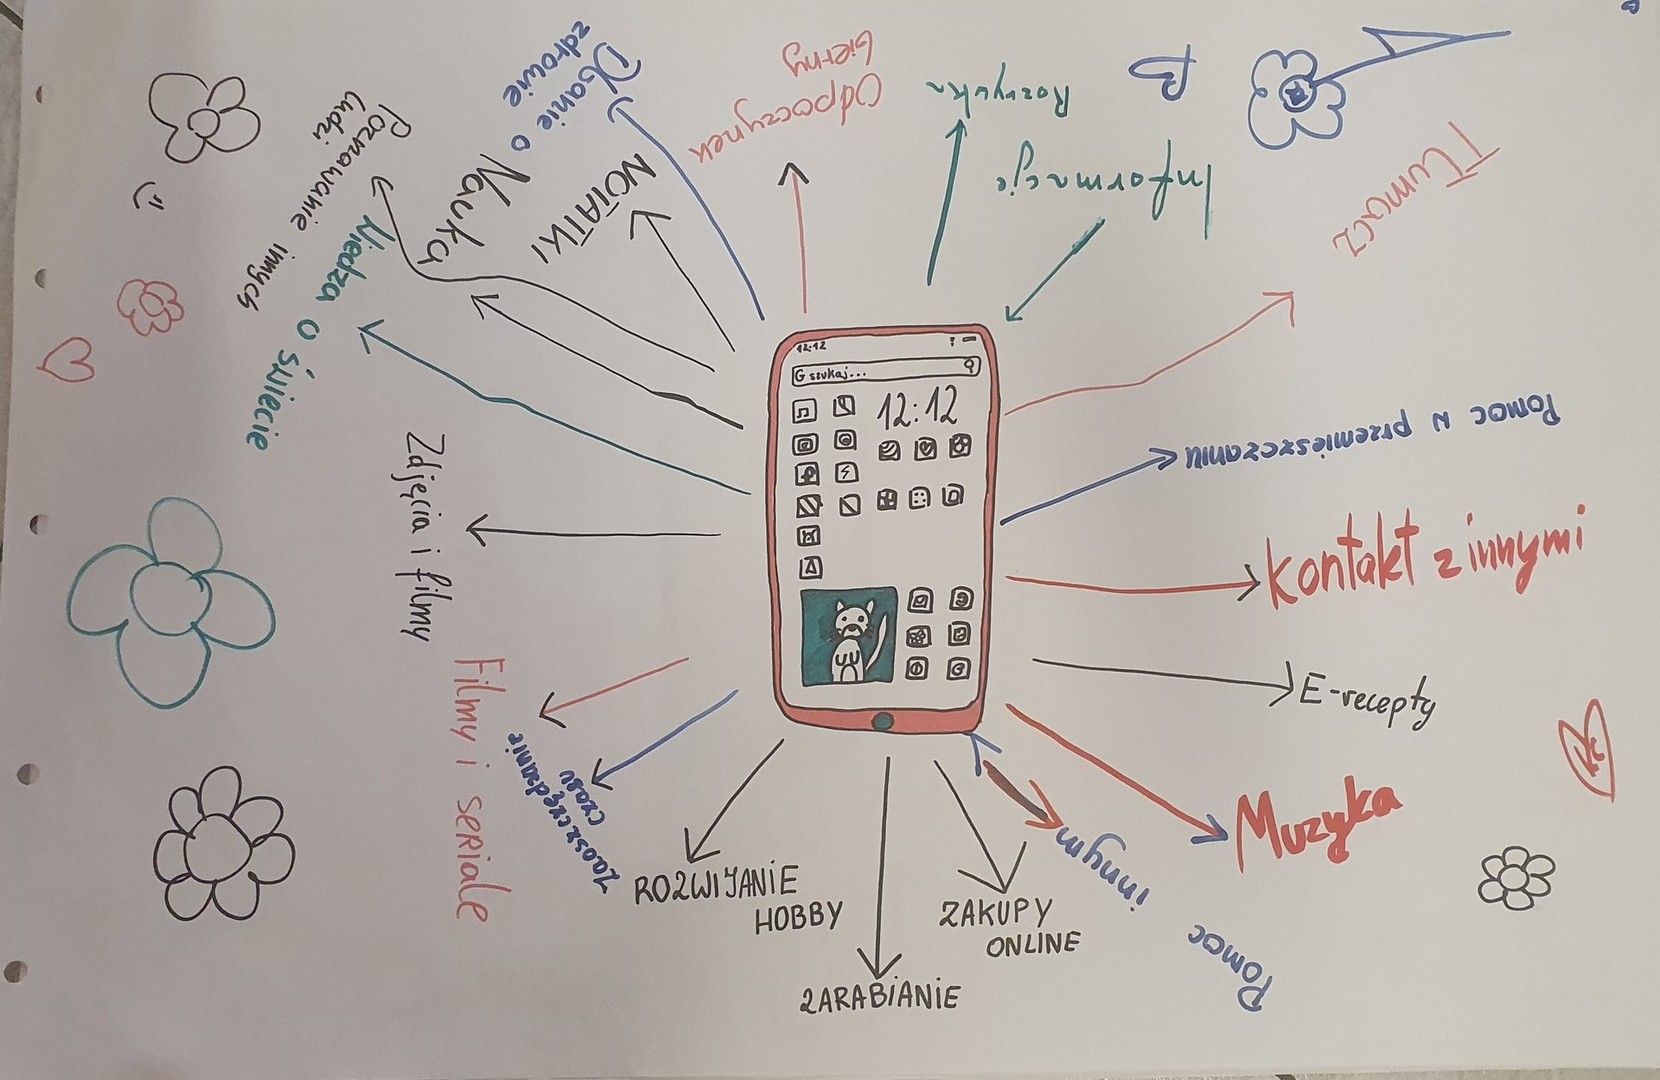 Dbanie o
zdrowie
Odpoczynek
bierny
Rozrywka
Informacje
Tłumacz
Poznawanie innych
ludzi
Nauka
NOTATKI
Wiedza o świecie
12:12
G szukaj...
12:12
Pomoc w przemieszczaniu
Zdjęcia i filmy
Kontakt z innymi
E-recepty
Filmy i seriale
Zaoszczędzanie
czasu
Muzyka
Pomoc innym
ROZWIJANIE
HOBBY
ZAKUPY
ONLINE
ZARABIANIE